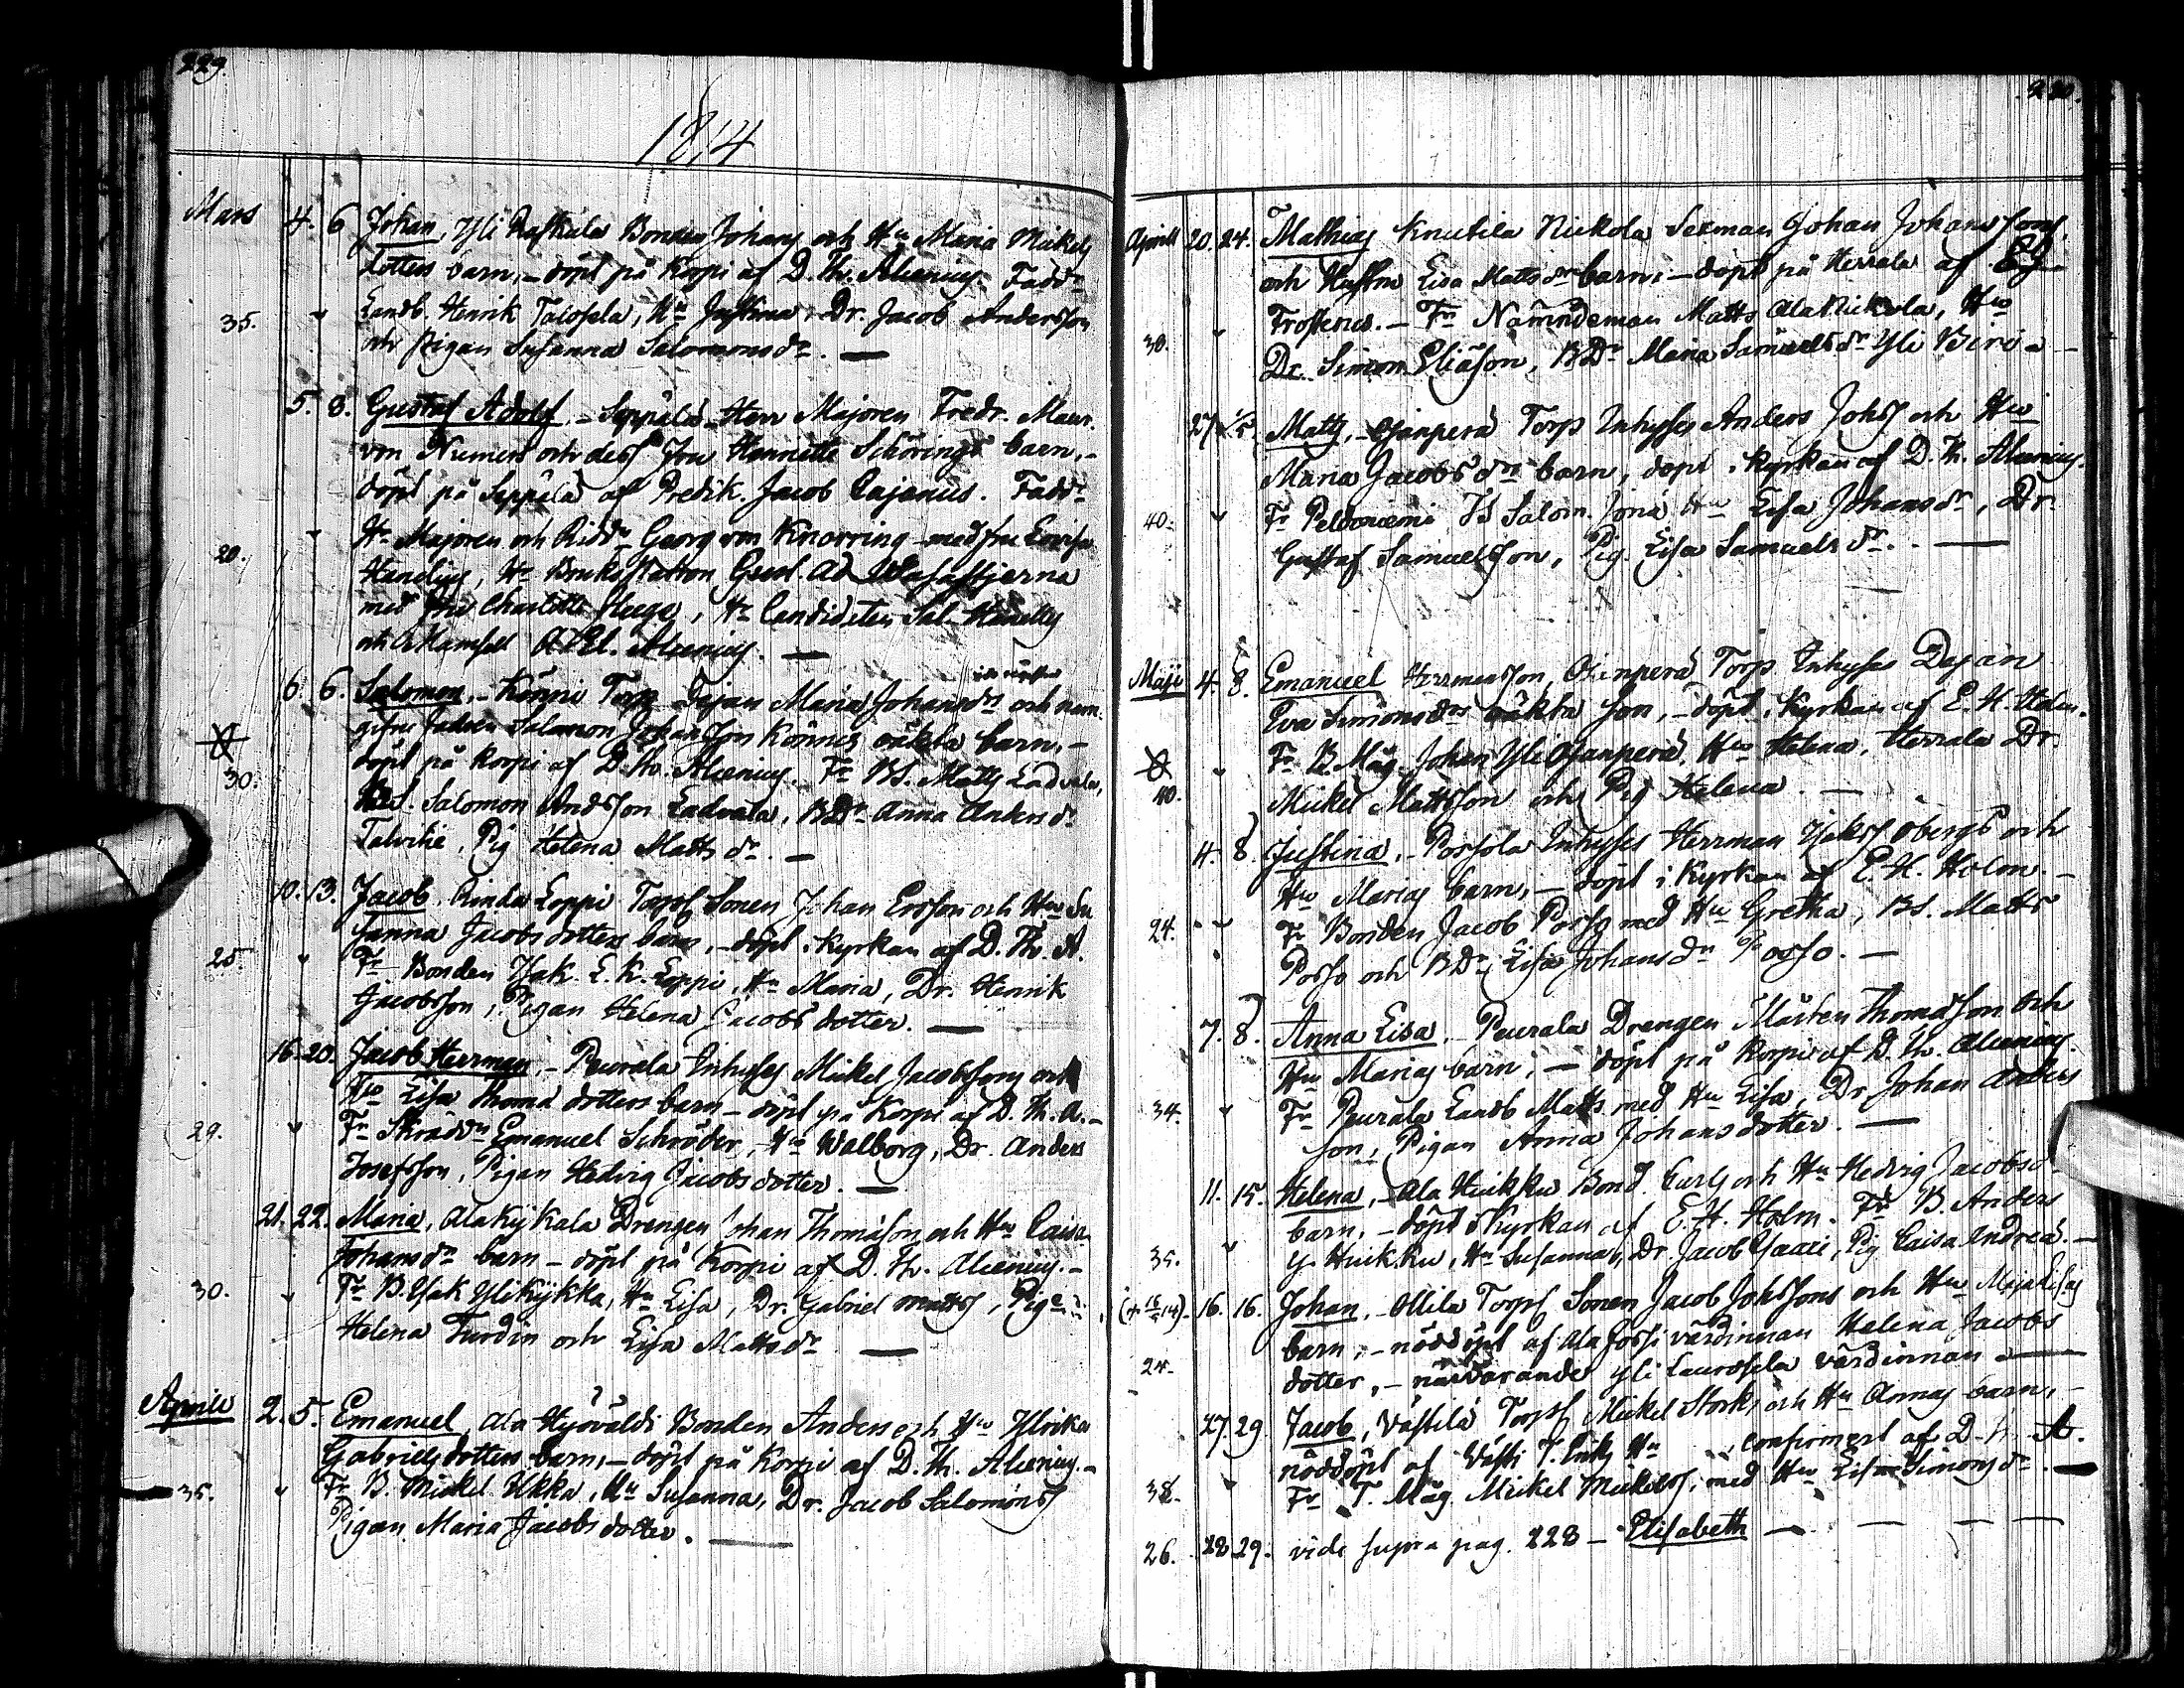 229.
1814
Mars 4. 6 Johan, Yli Raskala Bonden Johans och Hu Maria Mickels
dotters barn, – döpt på Korpi af D. Th. Alcenius. Faddr
35. " Landb. Henrik Talosela, Hu Justina, Dr. Jacob Andersson
och Pigan Susanna Salomonsdr. —
5. 8. Gustaf Adolf, – Seppälä Herr Majoren Fredr. Maur.
von Numers och dess Fru Henriette Schörings barn, –
döpt på Seppälä af Predik. Jacob Cajanus. Faddr
20. " Hr Majoren och Riddr Georg von Knorring med fru Lovisa
Hr Bruks Patron Gust. Ad. Wasastjerna
med fru Charlotte, Hr Candidaten Sal.
och Mamsell Alcenius. —
6 6. Salomon, – Torp Dejan Maria Johansdr och nam
gifne fadren Salomon Johansson Könnes oäkta barn, –
30. döpt på Korpi af D. Th. Alcenius. Fr BS. Matts Ladvala,
BS. Salomon Andsson Ladvala, BDr Anna Andersdr
Talvitie, Pig Helena Mattsdr. —
10. 13. Jacob, Rinda Loppi Torps Sonen Johan Ersson och Hu Su
sanna Jacobsdotters barn, – döpt i kyrkan af D. Th. A.
25. " Fr Bonden Isak L. K. Loppi, Hu Maria, Dr. Henrik
Jacobsson, Pigan Helena Jacobsdotter. —
16. 20. Jacob Herrman, – Peurala Inhyses Mickel Jacobssons och
Hu Lisa Thomä dotters barn – döpt på Korpi af D. Th. A. –
29. " Fr Skräddn Emanuel Schröder, Hu Walborg, Dr. Anders
Josefsson, Pigan Hedvig Jacobsdotter. —
21. 22. Maria, Ala Kykala Drengen Johan Thomasson och Hu Caisa
Johansdr barn – döpt på Korpi af D. Th. Alcenius. –
30. " Fr B. Isak Ylikykkä, Hu Lisa, Dr. Gabriel Mattss, Pig
Helena Turdin och Lisa Mattsdr —
Aprill 2. 5. Emanuel Ala Hyöväldi Bonden Anders och Hu Ulrika
Gabriels dotters barn, – döpt på Korpi af D. Th. Alcenius. –
35. " Fr B. Mickel Ukka, Hu Susanna, Dr. Jacob Salomonss
Pigan Maria Jacobsdotter. —
230.
Aprill 20. 24. Mathias Knutila Nickola Sexman Johan Johanssons
och Hustru Lisa Mattsdr barn, – döpt på Herrala af
30. " Frosterus. – Fr Nämndeman Matts Ala Nickola, Hu
Dr. Simon Eliasson, BDr Maria Samuelsdr Yli Biri –
27 1/5 Matts, – Ojanperä Torp Inhyses Anders Johss och Hu
Maria Jacobsdr barn, döpt i kyrkan af D. Th. Alcenius.
40. " Fr Peldoniemi Is Salom. Hu Lisa Johansdr, Dr.
Gustaf Samuelsson, Pig. Lisa Samuelsdr. —
Maji 4. 8. Emanuel Herrmansson, Ojanperä Torp Inhyses Dejan
Eva Simonsdrs oäkta son, – döpt i kyrkan af E. H. Holm.
40. " Fr B. Måg Johan Yli Ojanperä, Hu Helena, Herrala Dr.
Mickel Mattsson och Pig Helena. —
4. 8. Justina, – Porsola Inhyses Herrman Isakss Öbergs och
Hu Marias barn, – döpt i kyrkan af E. H. Holm. –
24. " Fr Bonden Jacob Porsa med Hu Gretha, BS. Matts
Porso och BDr Lisa Johansdr Porso. —
7. 8. Anna Lisa, – Peurala Drengen Mårten Thomasson och
Hu Marias barn; – döpt på Korpi af D. Th. Alcenius.
34. " Fr Peurala Landb Matts med Hu Lisa, Dr. Johan Anders
son, Pigan Anna Johansdotter. —
11. 15. Helena, – Ala Huikku Bond. Carls och Hu Hedvig Jacobsdr
barn, – döpt i kyrkan af E. H. Holm. Fr B. Anders
35. " Y. Huikku, Hu Susanna, Dr. Jacob Isaci, Pig Caisa Andreä. –
16. 16. Johan, – Ollila Torps Sonen Jacob Johssons och Hu Maja Lisas
24. barn, – nöddöpt af Ala Jossi värdinnan Helena Jacobs
dotter, – närvarande Yli Laurosela värdinnan —
27 29 Jacob, Västilä Torps Mickel Storks och Hu Annas barn, –
nöddöpt af Västi T. Enks Hu, confirmert af D. Th. A.
38. " Fr T. Måg Mickel Mickelss, med Hu Lisa Simonsdr. —
26. 28 29. vide supra pag. 228 – Elisabeth —